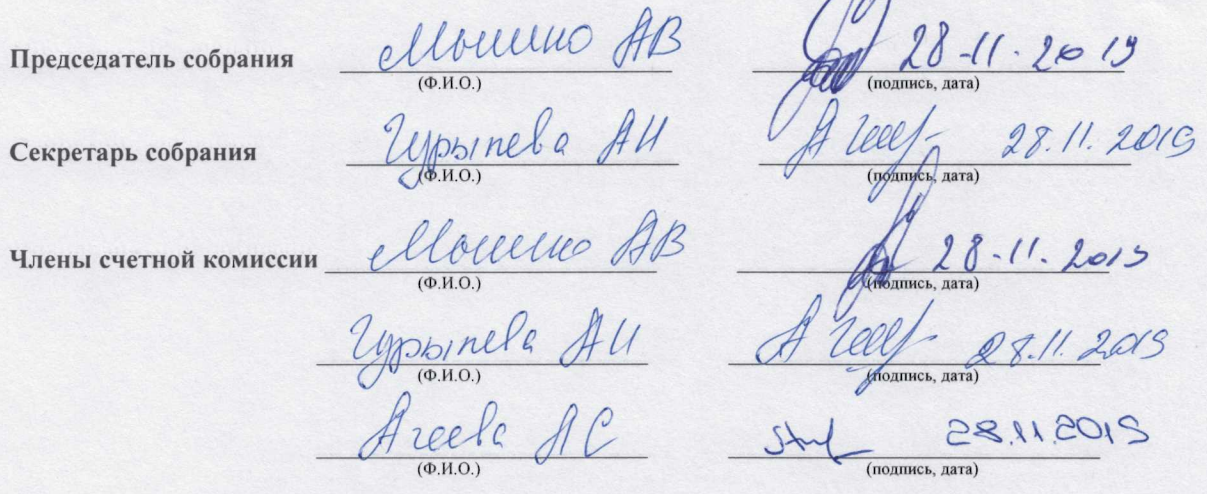 Председатель собрания Мошно АВ 28-11-2019
(Ф.И.О.) (подпись, дата)
Секретарь собрания Гурыпева АИ 28.11.2019
(Ф.И.О.) (подпись, дата)
Члены счетной комиссии АВ 28-11-2019
(Ф.И.О.) (подпись, дата)
Гурыпева АИ 28.11.2019
(Ф.И.О.) (подпись, дата)
Агеева АС 28.11.2019
(Ф.И.О.) (подпись, дата)